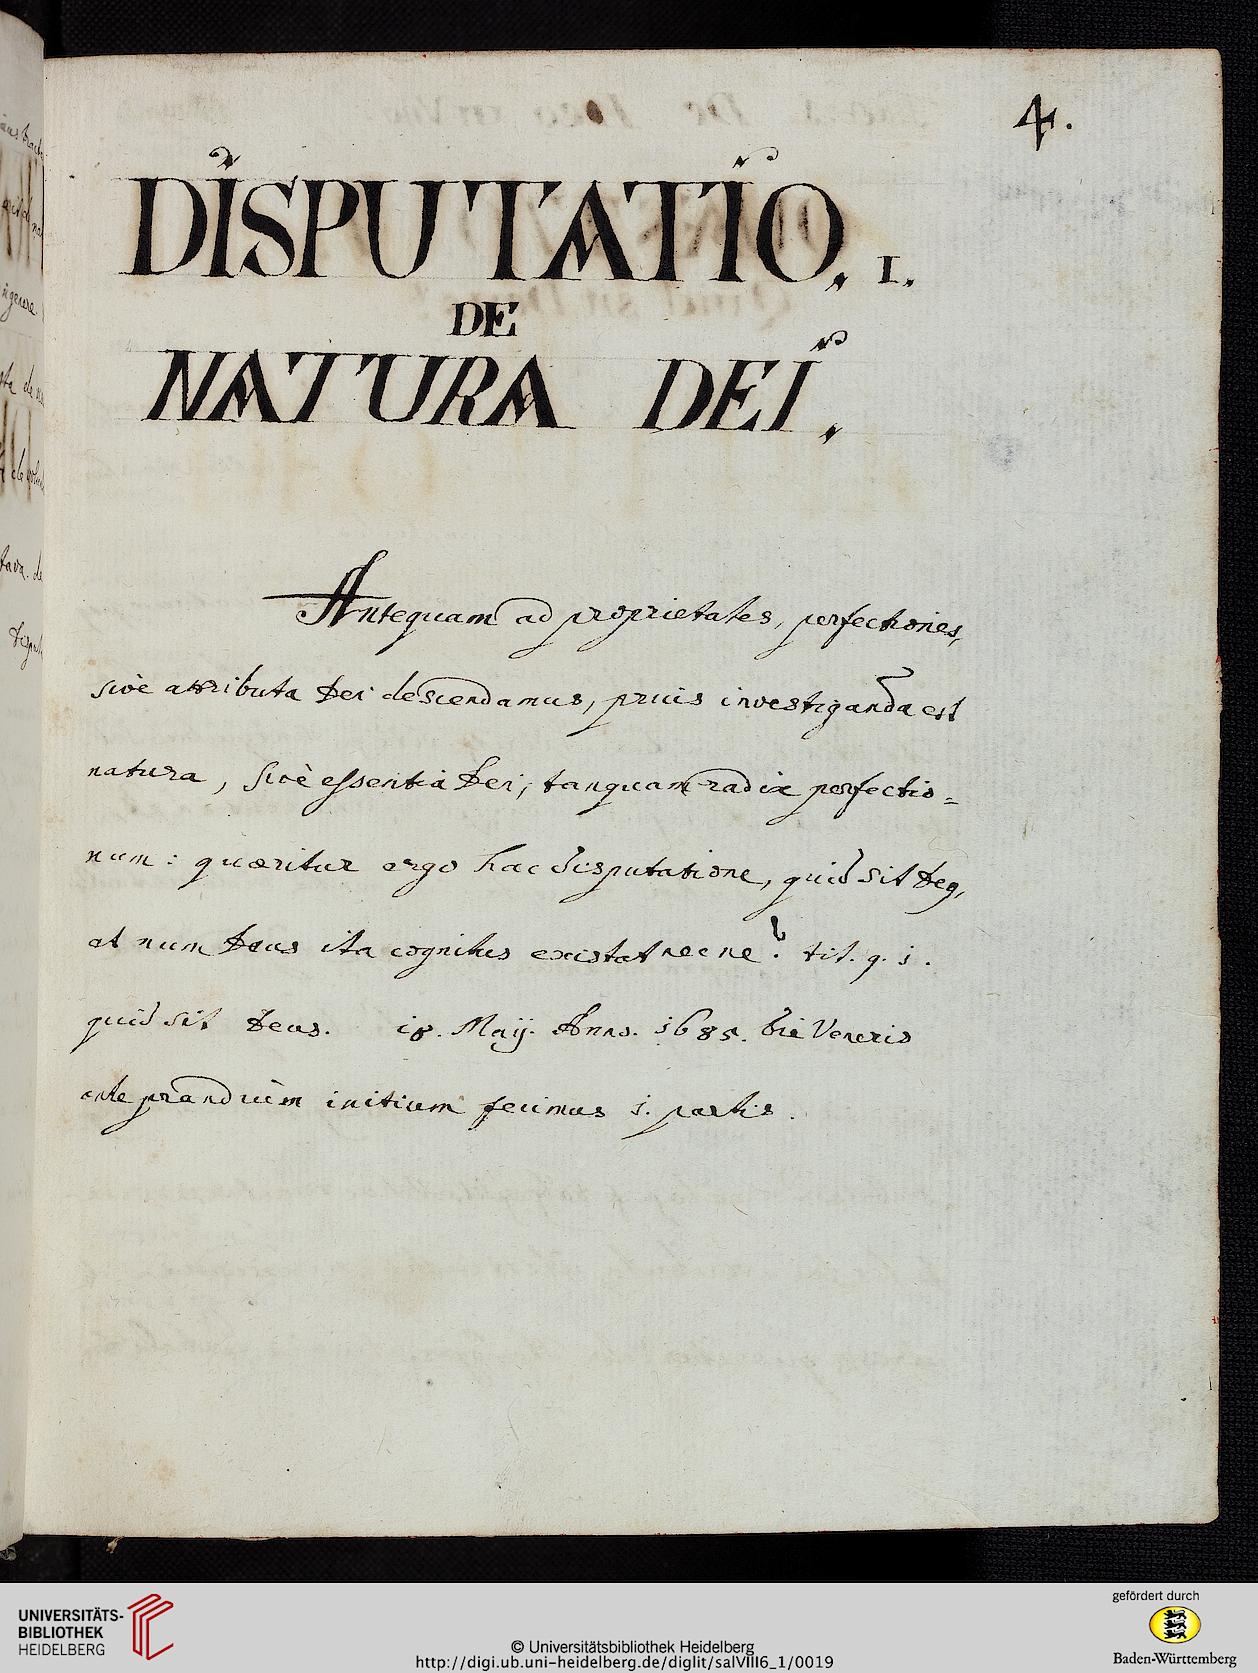 4.
DISPUTATIO. 1.
DE
NATURA DEI.
Antequam ad proprietates, perfectiones,
sivè attributa Dei descendamus, priùs investiganda est
natura, sivè essentia Dei, tanquam radix perfectio=
num: quæritur ergo hac disputatione, quid sit Deq,
at num Deus ita cognitus existat necne? tit. q. i.
quid sit Deus. 18. Maÿ. Anno. 1685. die Veneris
ante prandium initium fecimus i. partis.
UNIVERSITÄTS-
BIBLIOTHEK
HEIDELBERG
© Universitätsbibliothek Heidelberg
http://digi.ub.uni-heidelberg.de/diglit/salVIII6_1/0019
gefördert durch
Baden-Württemberg